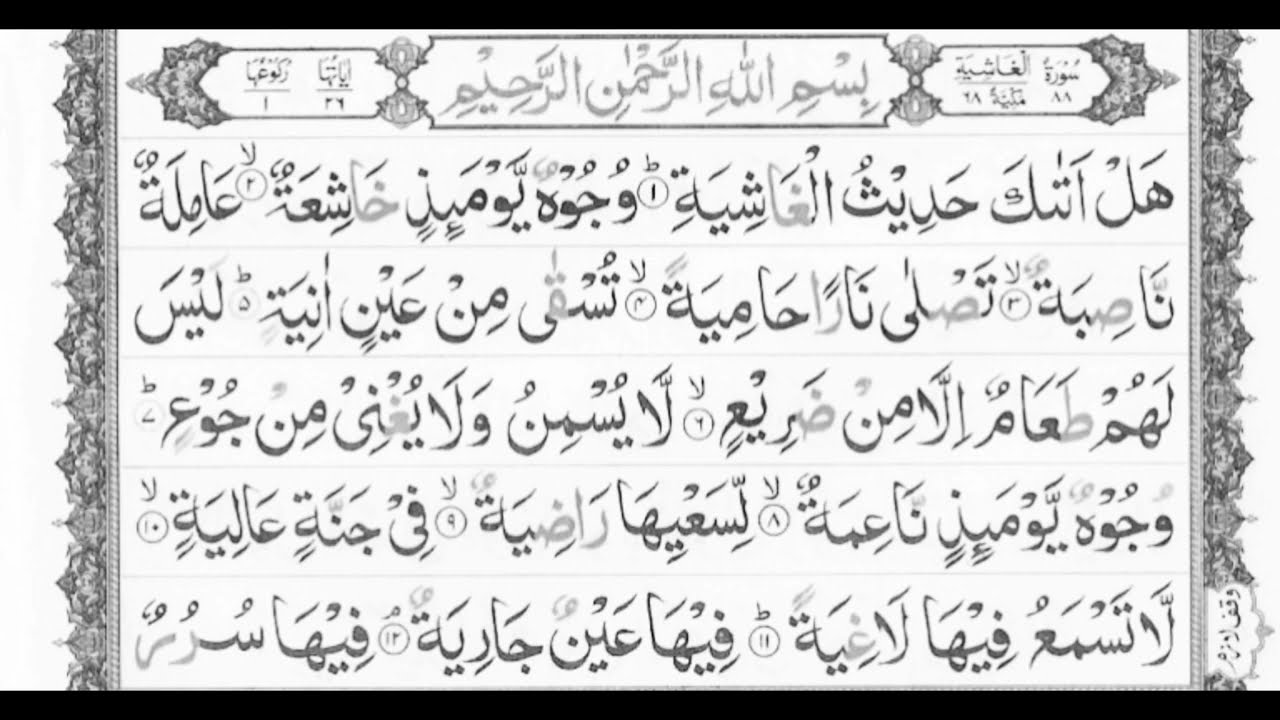 سُوْرَةُ الْغَاشِيَةِ
٨٨ مَكِّيَّةٌ ٦٨
بِسْمِ اللّٰهِ الرَّحْمٰنِ الرَّحِيْمِ
اٰيَاتُهَا ٢٦
رُكُوْعُهَا ١
هَلْ اَتٰىكَ حَدِيْثُ الْغَاشِيَةِ ۝١ؕ وُجُوْهٌ يَّوْمَىِٕذٍ خَاشِعَةٌ ۝٢ۙ عَامِلَةٌ
نَّاصِبَةٌ ۝٣ۙ تَصْلٰى نَارًا حَامِيَةً ۝٤ۙ تُسْقٰى مِنْ عَيْنٍ اٰنِيَةٍ ۝٥ؕ لَيْسَ
لَهُمْ طَعَامٌ اِلَّا مِنْ ضَرِيْعٍ ۝٦ۙ لَّا يُسْمِنُ وَلَا يُغْنِىْ مِنْ جُوْعٍ ۝٧ؕ
وُجُوْهٌ يَّوْمَىِٕذٍ نَّاعِمَةٌ ۝٨ۙ لِّسَعْيِهَا رَاضِيَةٌ ۝٩ۙ فِىْ جَنَّةٍ عَالِيَةٍ ۝١٠ۙ
لَّا تَسْمَعُ فِيْهَا لَاغِيَةً ۝١١ؕ فِيْهَا عَيْنٌ جَارِيَةٌ ۝١٢ۘ فِيْهَا سُرُرٌ
وقف لازم